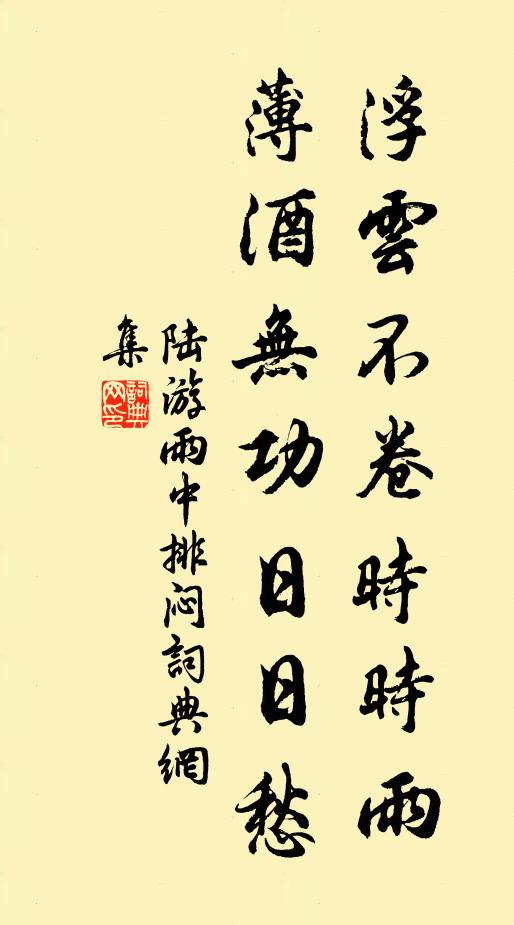 浮雲不卷時時雨
薄酒無功日日愁
陸游雨中排闷詞典網
集
詞典网印